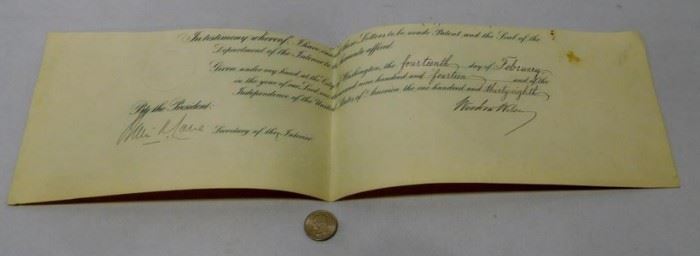 In testimony whereof, I have Letters to be made Patent and the Seal of the
Department of the Interior to be hereunto affixed.
Given under my hand at the City Washington, the fourteenth day of February
in the year of our Lord one thousand nine hundred and fourteen and of the
Independence of the United States of America, the one hundred and thirty-eighth
By the President:
Woodrow Wilson
Secretary of the Interior